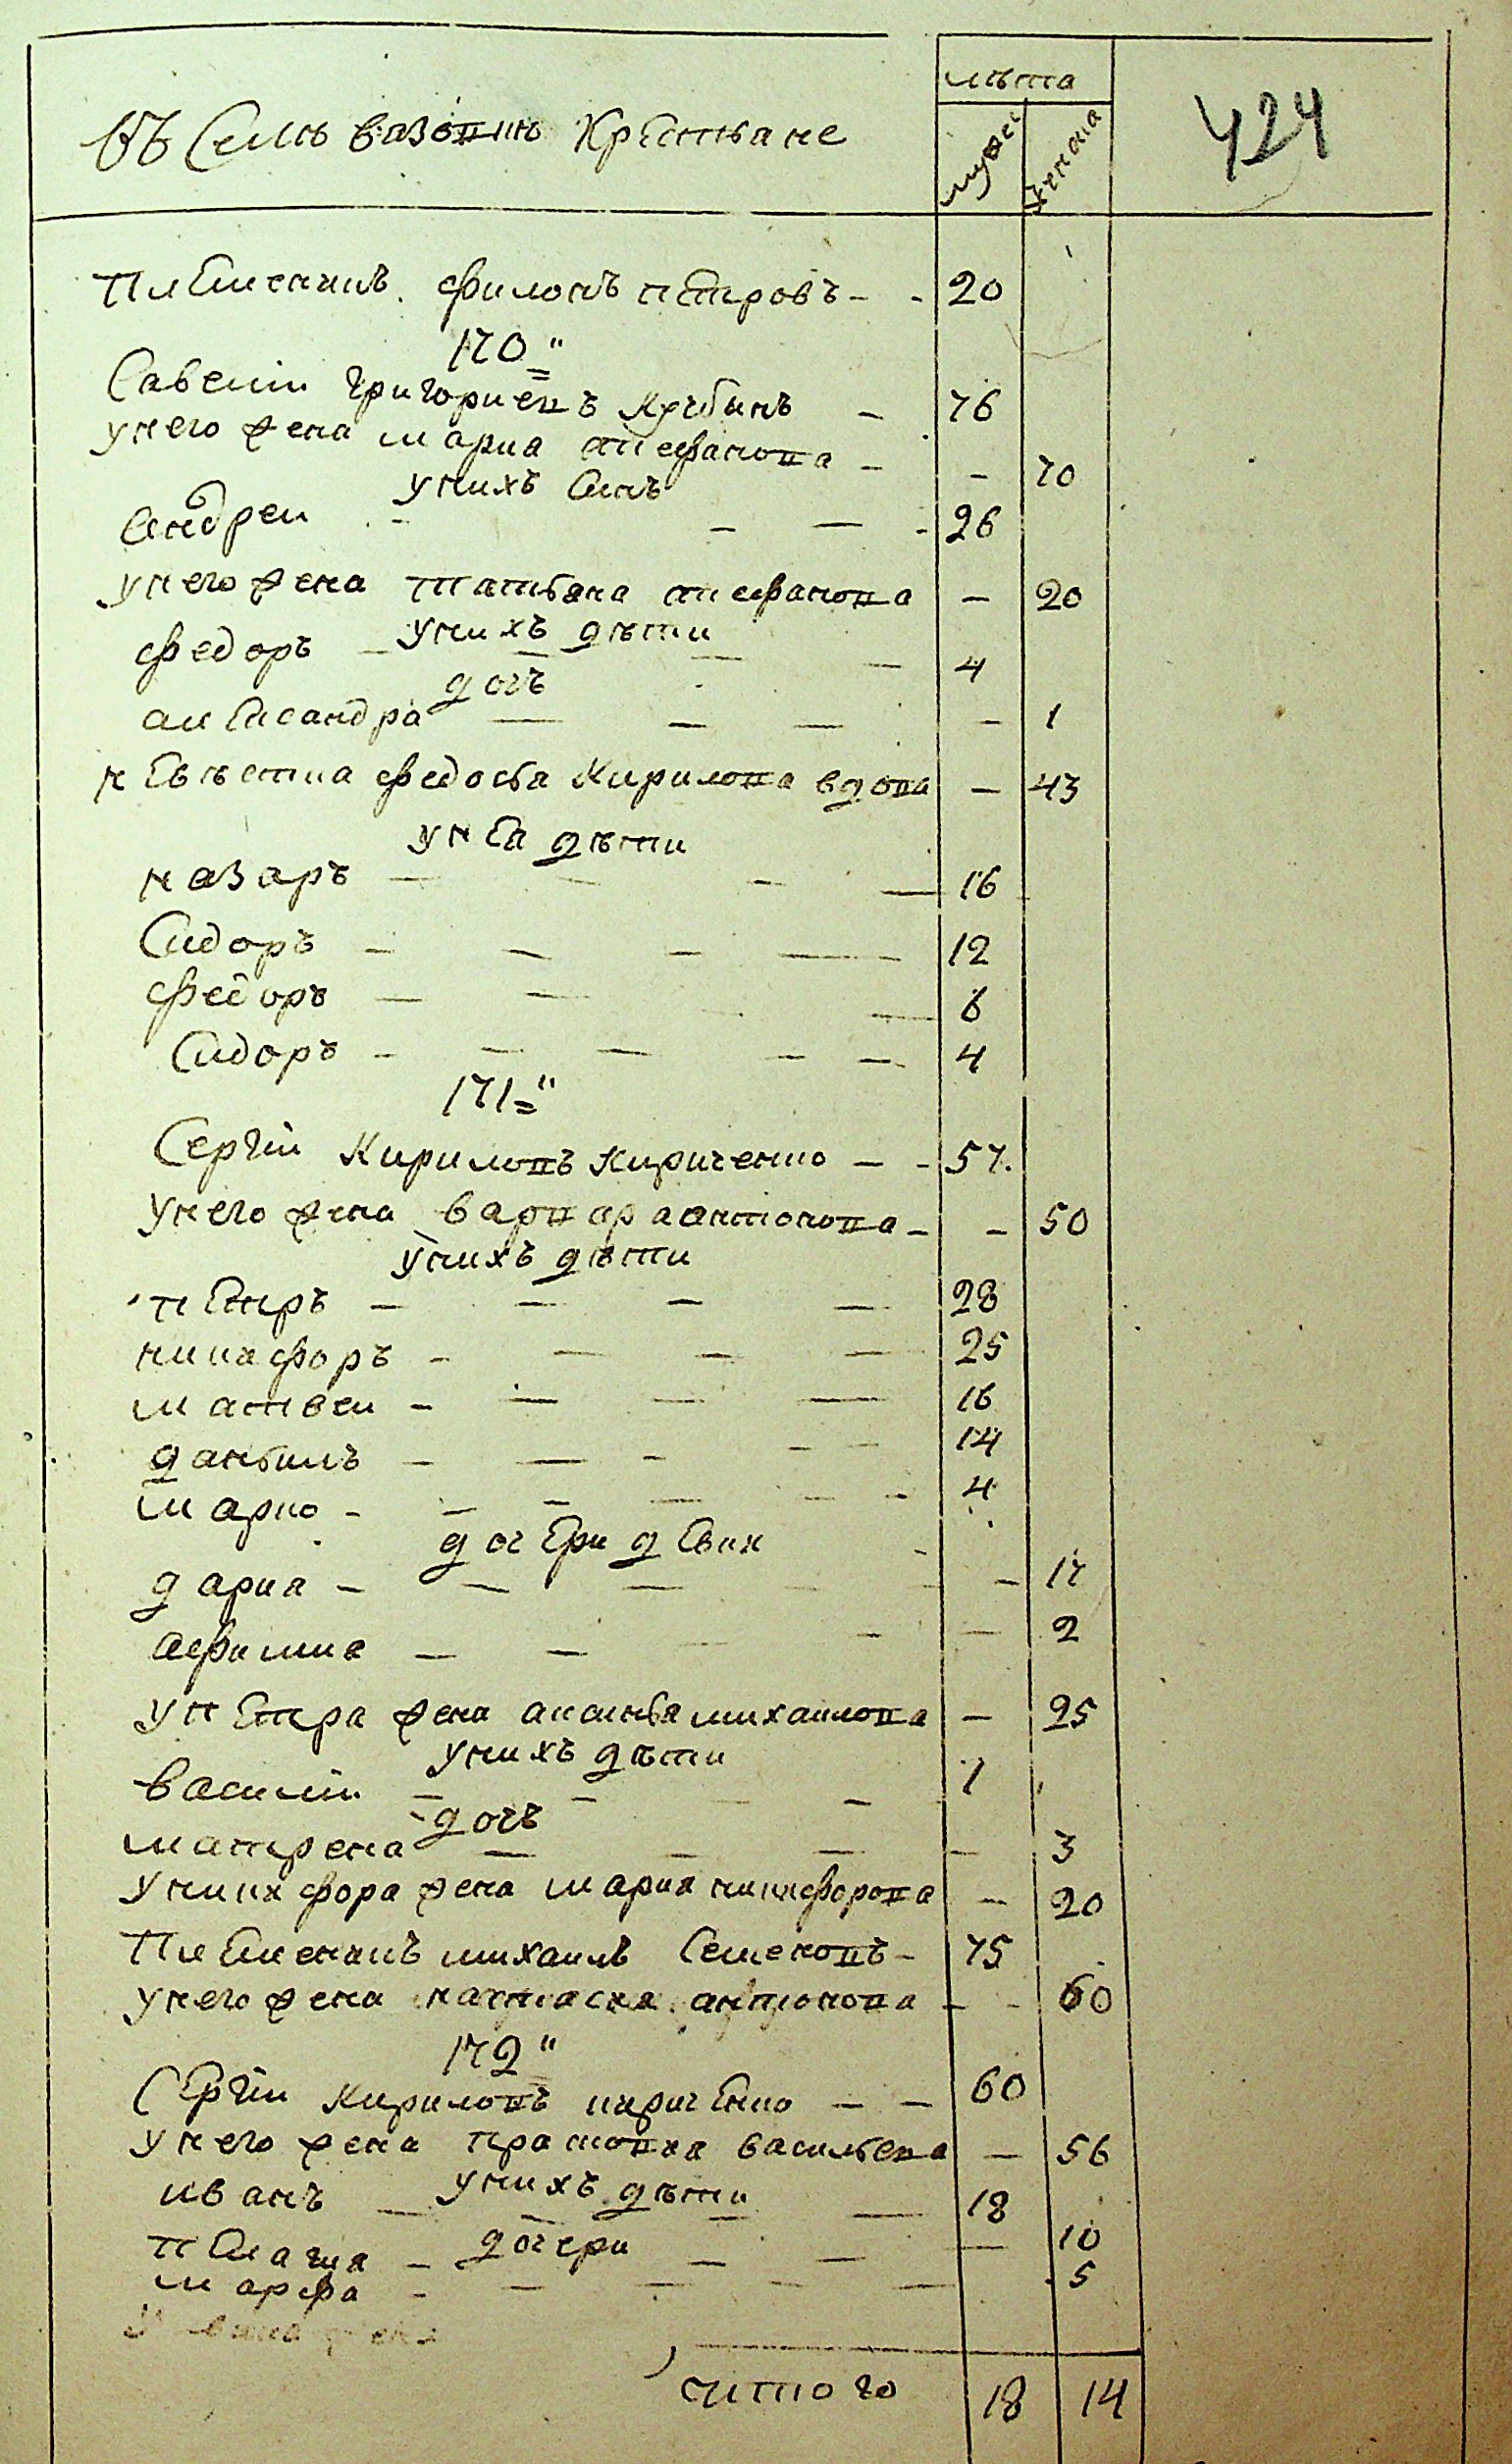 лѣта
въ Селѣ вязовѣ Крестьяне
мужеи
женска
424
племенникъ филонъ петровъ - - 20
170"
Савелiи григориевъ - 76
у него жена мариа стефанова - - 70
у нихъ Синъ
Андреи - - — - 26
у него жена татьяна стефанова — 20
у нихъ дѣти
федоръ - — — — 4
дочь
александра — — — - 1
невѣстка федосья Кирилова вдова — 43
у нея дѣти
назаръ — — - — 16
Сидоръ — — — — - 12
федоръ — — — 6
Сидоръ - — — - — 4
171"
Сергiи Кириловъ Кириченко — - 57.
у него жена варвара антонова - - 50
у нихъ дѣти
петръ — — — — 28
никифоръ - — — — 25
матвеи - — — — 16
данъилъ - — - - - 14
марко - — - — - - 4
дочери девки
дариа - — — - 17
афимиа — — - — 2
у петра жена аксинья михаилова — 25
у нихъ дѣти
василiи - - — 1
дочь
матрена — — — — 3
у никифора жена мариа никифорова — 20
племенникъ михаилъ Семеновъ - 75
у него жена настасиа антонова - - 60
172"
Сергiи Кириловъ кириченко — — 60
у него жена прасковиа васильева — 56
у нихъ дѣти
иванъ — — — — 18
дочери
пелагиа - — — — 10
марфа - - — - — - 5
итого 18 14